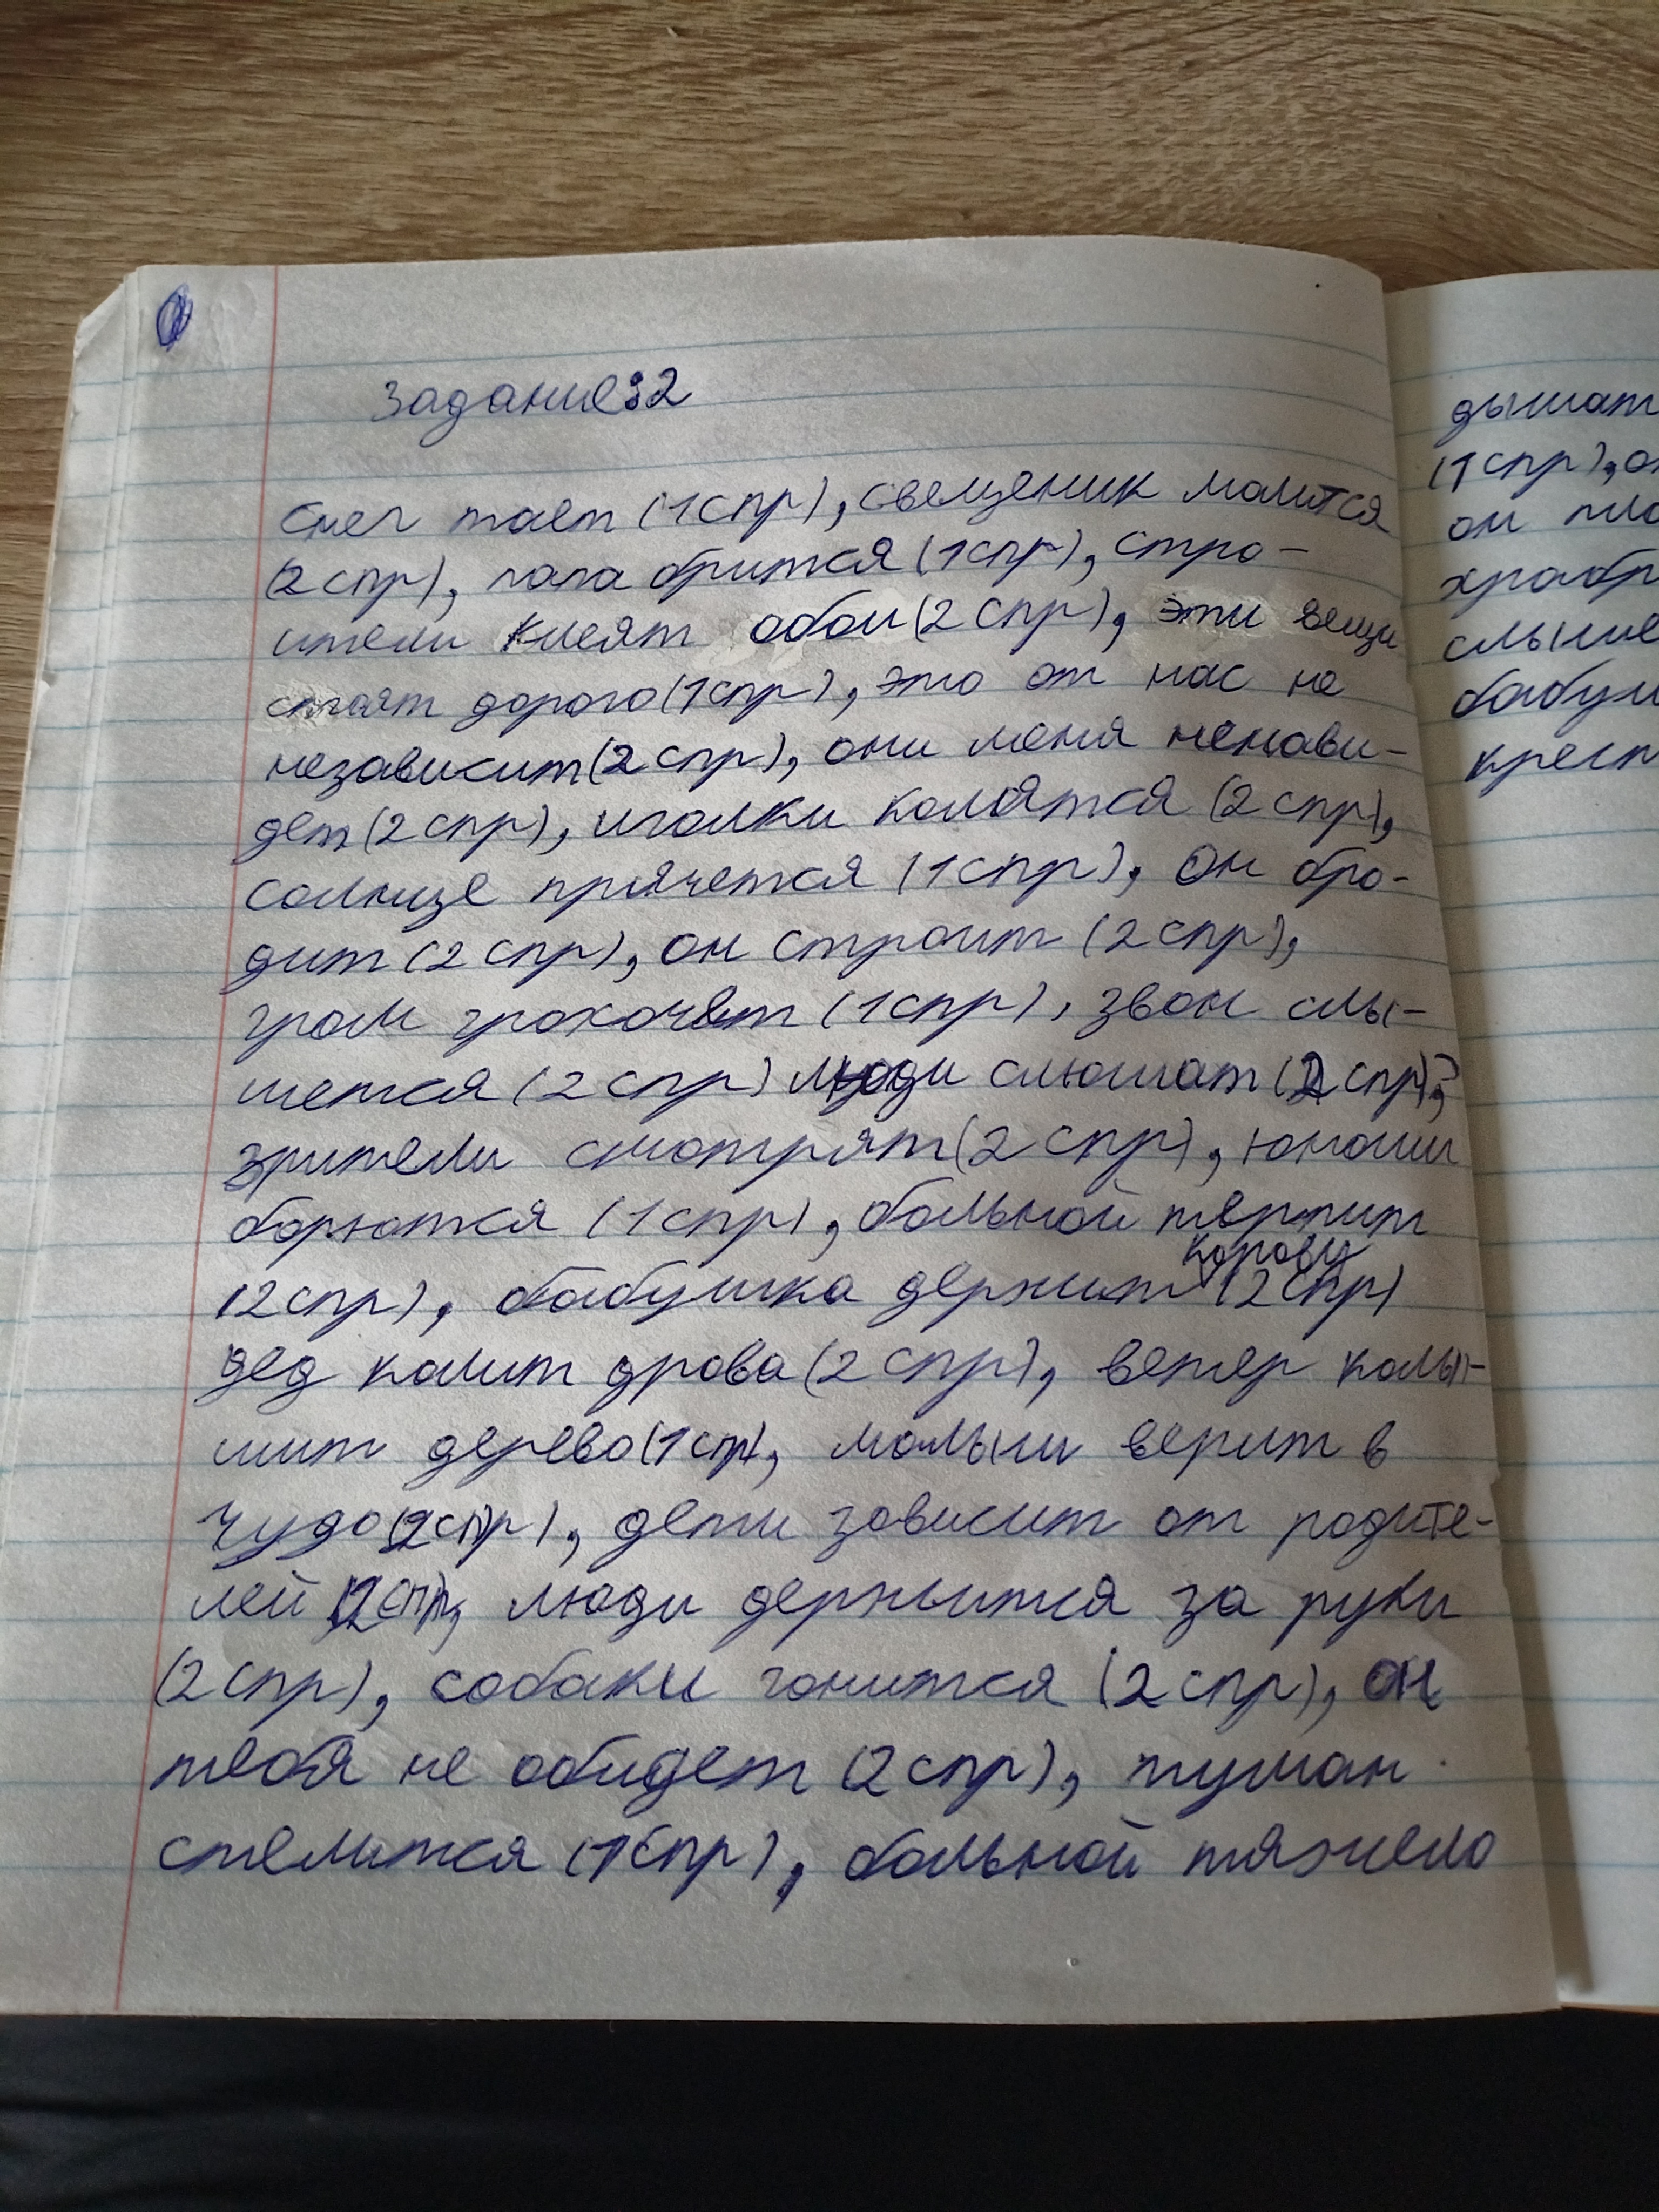 Задание:2
Снег тает (1спр), свещеник молится
(2 спр), папа бриткя (1спр), стро-
ители клеят обои (2 спр), эти вещи
стоят дорого (1спр), это от нас не
независит (2 спр), они меня ненави-
дет (2 спр), иголки колятся (2 спр),
солнце прячется (1спр), он бро-
дит (2 спр), он строит (2 спр),
гром грохочет (1спр), звон слы-
шется (2 спр) люди слюшат (2 спр),
зрители смотрят (2 спр), юноши
борются (1спр), больной терпит
(2спр), бабушка держит корову (2 спр)
дед колит дрова (2 спр), ветер колы-
шит дерево (1спр), малыш верит в
чудо (2спр), дети зависит от родите-
лей (2спр), люди держится за руки
(2 спр), собаки гонится (2 спр), он
тебя не обидет (2 спр), туман
стелится (1спр), больной тяжело
дышат
(1 спр),
он
храбр
слыше
бабуш
крест